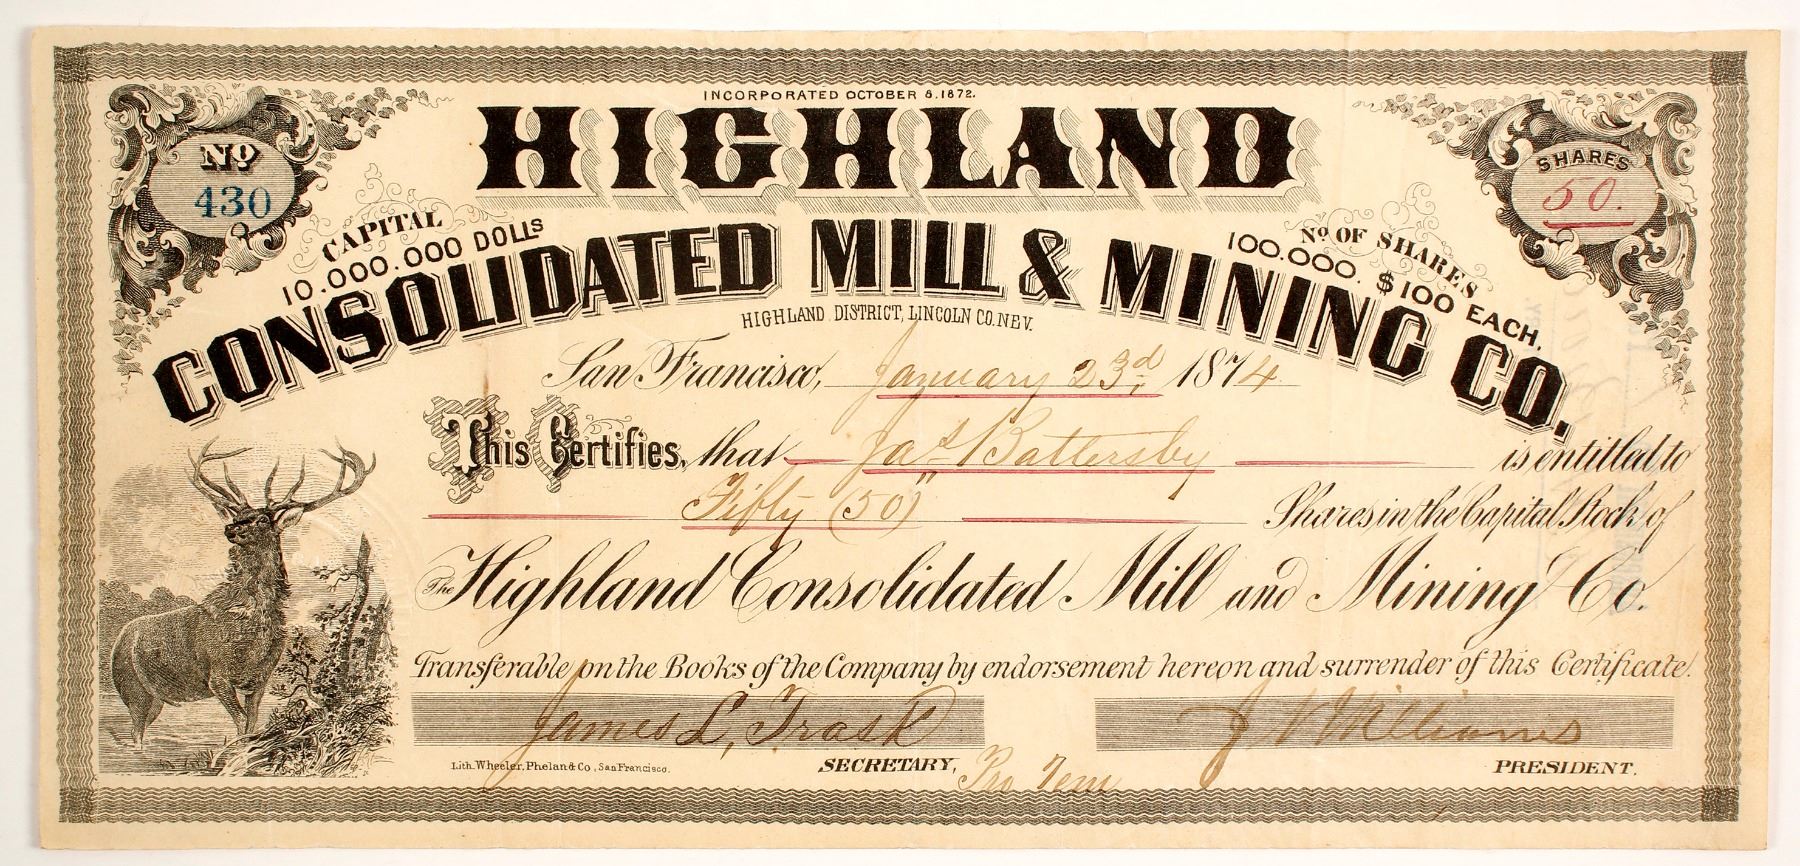 INCORPORATED OCTOBER 8.1872.
HIGHLAND
No 430
SHARES
50.
CAPITAL
10.000.000 DOLLS
No OF SHARES
100.000. $100 EACH.
CONSOLIDATED MILL & MINING CO.
HIGHLAND DISTRICT, LINCOLN CO. NEV.
San Francisco, January 23d 1874
This Certifies, that Jas Battersby is entitled to
Fifty (50) Shares in the Capital Stock of
The Highland Consolidated Mill and Mining Co.
Transferable on the Books of the Company by endorsement hereon and surrender of this Certificate.
James L. Trask
J Williams
Lith. Wheeler, Phelan & Co, San Francisco.
SECRETARY, Pro Tem
PRESIDENT.